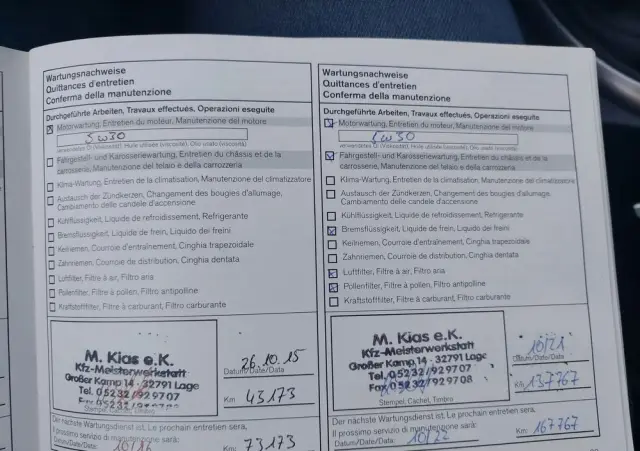 Wartungsnachweise
Quittances d'entretien
Conferma della manutenzione
Durchgeführte Arbeiten, Travaux effectués, Operazioni eseguite
Motorwartung, Entretien du moteur, Manutenzione del motore
5W30
verwendetes Öl (Viskosität), Huile utilisée (viscosité), Olio usato (viscosità)
Fahrgestell- und Karosseriewartung, Entretien du châssis et de la
carrosserie, Manutenzione del telaio e della carrozzeria
Klima-Wartung, Entretien de la climatisation, Manutenzione del climatizzatore
Austausch der Zündkerzen, Changement des bougies d'allumage,
Cambiamento delle candele d'accensione
Kühlflüssigkeit, Liquide de refroidissement, Refrigerante
Bremsflüssigkeit, Liquide de frein, Liquido dei freini
Keilriemen, Courroie d'entraînement, Cinghia trapezoidale
Zahnriemen, Courroie de distribution, Cinghia dentata
Luftfilter, Filtre à air, Filtro aria
Pollenfilter, Filtre à pollen, Filtro antipolline
Kraftstofffilter, Filtre à carburant, Filtro carburante
M. Kias e.K.
Kfz-Meisterwerkstatt
Großer Kamp 14 · 32791 Lage
Tel. 05232/929707
Fax 05232/929708
Stempel, Cachet, Timbro
26.10.15
Datum/Date/Data
Km 43173
Der nächste Wartungsdienst ist, Le prochain entretien sera,
Il prossimo servizio di manutenzione sarà:
Datum/Date/Data: 10/16 Km: 73173
Wartungsnachweise
Quittances d'entretien
Conferma della manutenzione
Durchgeführte Arbeiten, Travaux effectués, Operazioni eseguite
Motorwartung, Entretien du moteur, Manutenzione del motore
W30
verwendetes Öl (Viskosität), Huile utilisée (viscosité), Olio usato (viscosità)
Fahrgestell- und Karosseriewartung, Entretien du châssis et de la
carrosserie, Manutenzione del telaio e della carrozzeria
Klima-Wartung, Entretien de la climatisation, Manutenzione del climatizzatore
Austausch der Zündkerzen, Changement des bougies d'allumage,
Cambiamento delle candele d'accensione
Kühlflüssigkeit, Liquide de refroidissement, Refrigerante
Bremsflüssigkeit, Liquide de frein, Liquido dei freini
Keilriemen, Courroie d'entraînement, Cinghia trapezoidale
Zahnriemen, Courroie de distribution, Cinghia dentata
Luftfilter, Filtre à air, Filtro aria
Pollenfilter, Filtre à pollen, Filtro antipolline
Kraftstofffilter, Filtre à carburant, Filtro carburante
M. Kias e.K.
Kfz-Meisterwerkstatt
Großer Kamp 14 · 32791 Lage
Tel. 05232/929707
Fax 05232/929708
Stempel, Cachet, Timbro
10/21
Datum/Date/Data
Km 137767
Der nächste Wartungsdienst ist, Le prochain entretien sera,
Il prossimo servizio di manutenzione sarà:
Datum/Date/Data: 10/22 Km: 167767